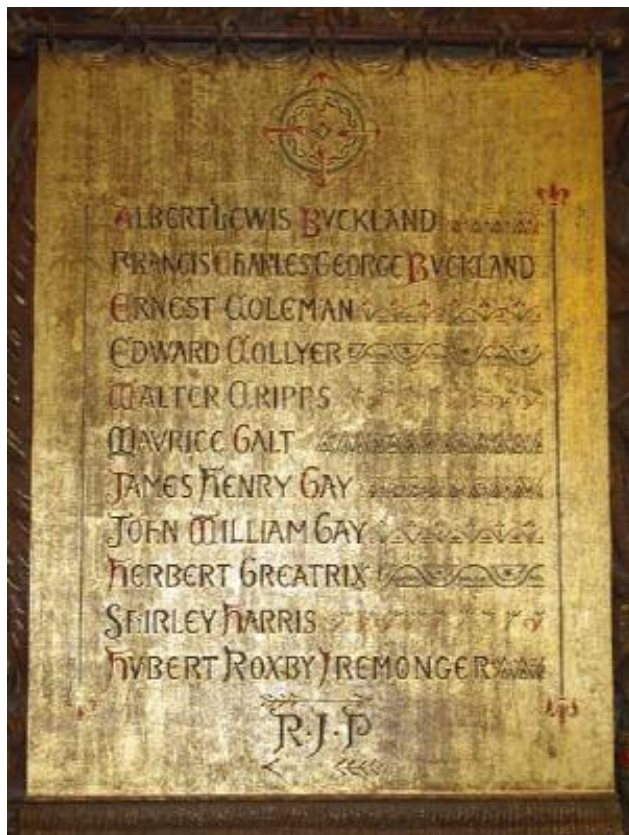 ALBERT LEWIS BVCKLAND
FRANCIS CHARLES GEORGE BVCKLAND
ERNEST COLEMAN
EDWARD COLLYER
WALTER CRIPPS
MAVRICE GALT
JAMES HENRY GAY
JOHN WILLIAM GAY
HERBERT GREATRIX
SHIRLEY HARRIS
HVBERT ROXBY IREMONGER
R·I·P